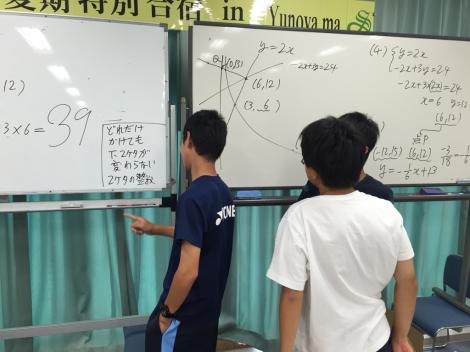 夏期特別合宿 in Yunoyama S
12)
3×6=39
どれだけ
かけても
下2ケタが
変わらない
2ケタの整数
y=2x
(0,13)
-2x+3y=24
(6,12)
(3, 6)
(4) { y=2x
-2x+3y=24
-2x+3×(2x)=24
x=6 y=12
(6,12)
点P
(-12,15) (6,12) -3/18 = -1/6
y=-1/6x+13
YONEX